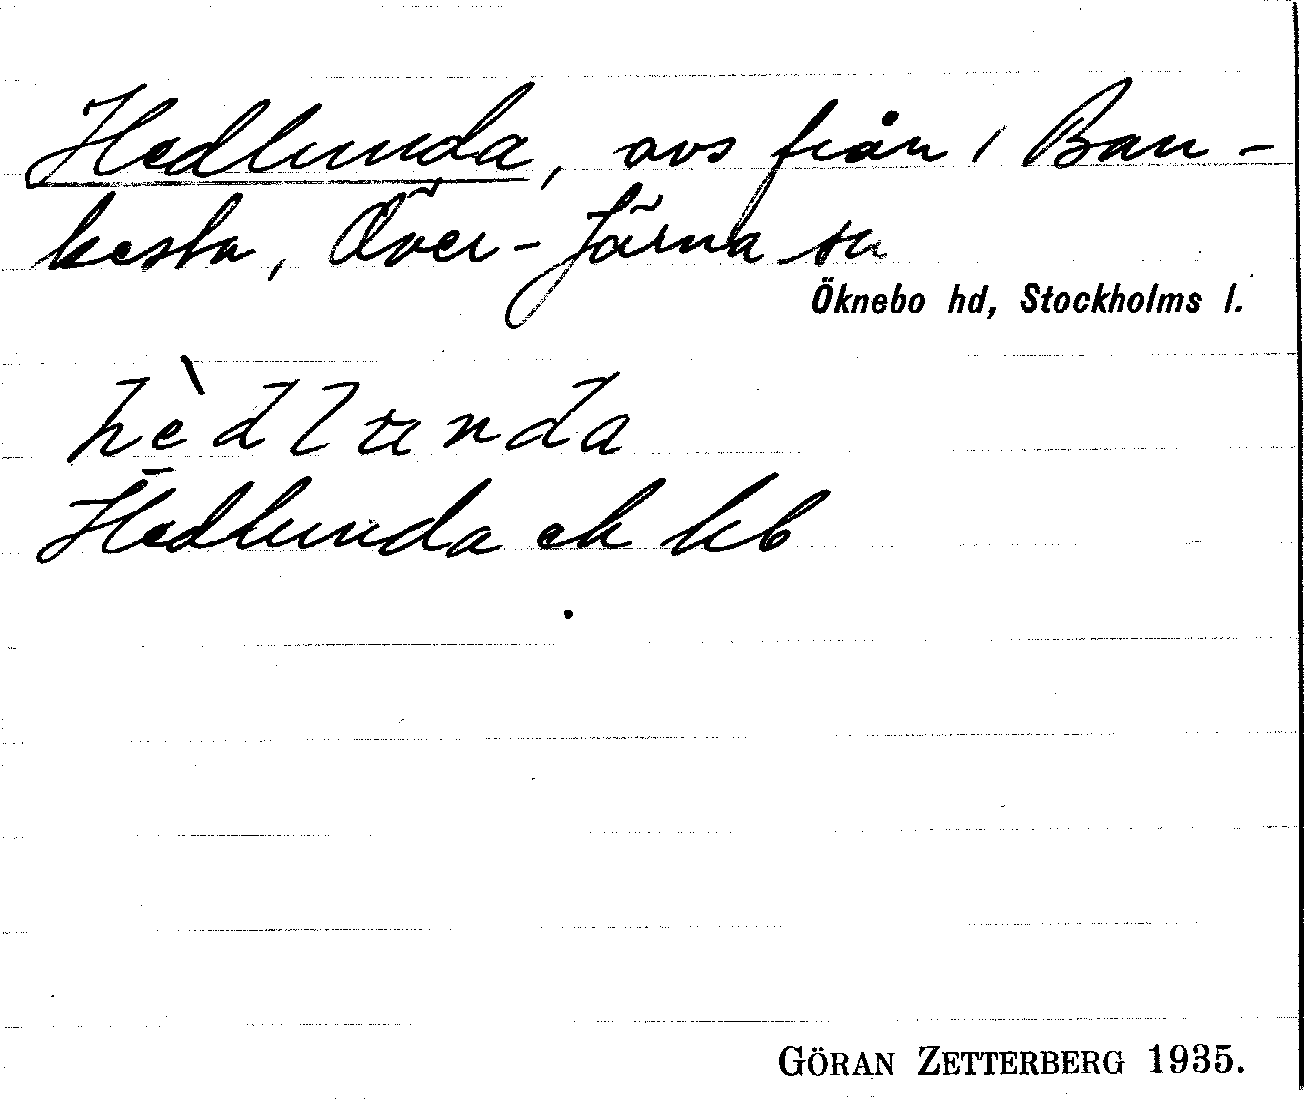 Hedlunda, avs från 1 Ban-
kesta, Över-Järna sn
Öknebo hd, Stockholms l.
hèdlunda
Hedlunda ek kb
GÖRAN ZETTERBERG 1935.